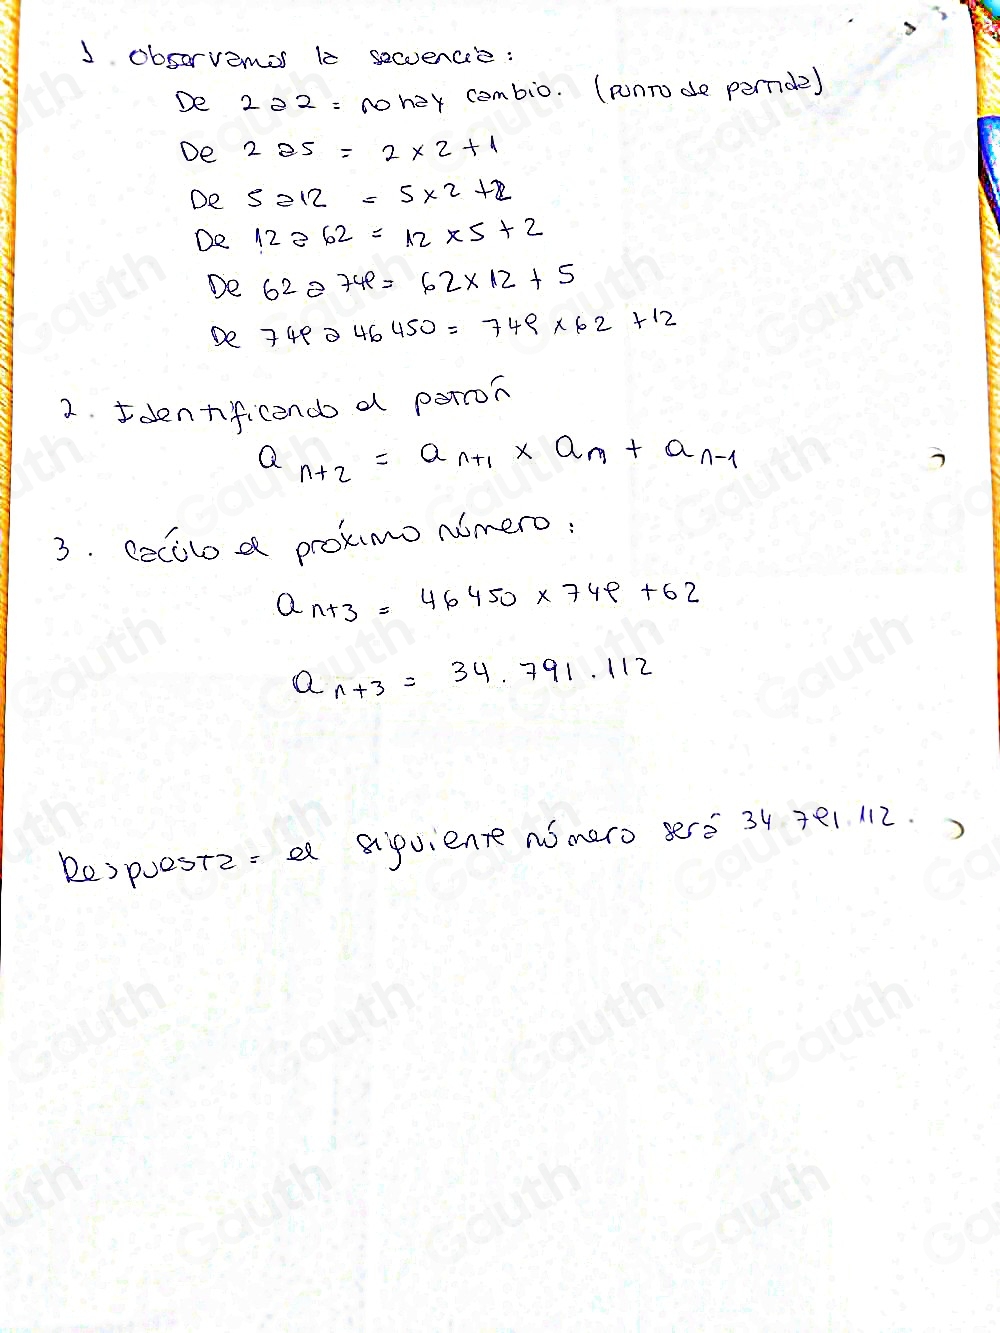 1. Observamos la secuencia:
De 2 a 2 = no hay cambio. (punto de partida)
De 2 a 5 = 2 × 2 + 1
De 5 a 12 = 5 × 2 + 2
De 12 a 62 = 12 × 5 + 2
De 62 a 749 = 62 × 12 + 5
De 749 a 46450 = 749 × 62 + 12
2. Identificando el patrón
a n+2 = a n+1 × a n + a n-1
3. Cacúlo el próximo número:
a n+3 = 46450 × 749 + 62
a n+3 = 34.791.112
Respuesta = el siguiente número será 34.791.112.